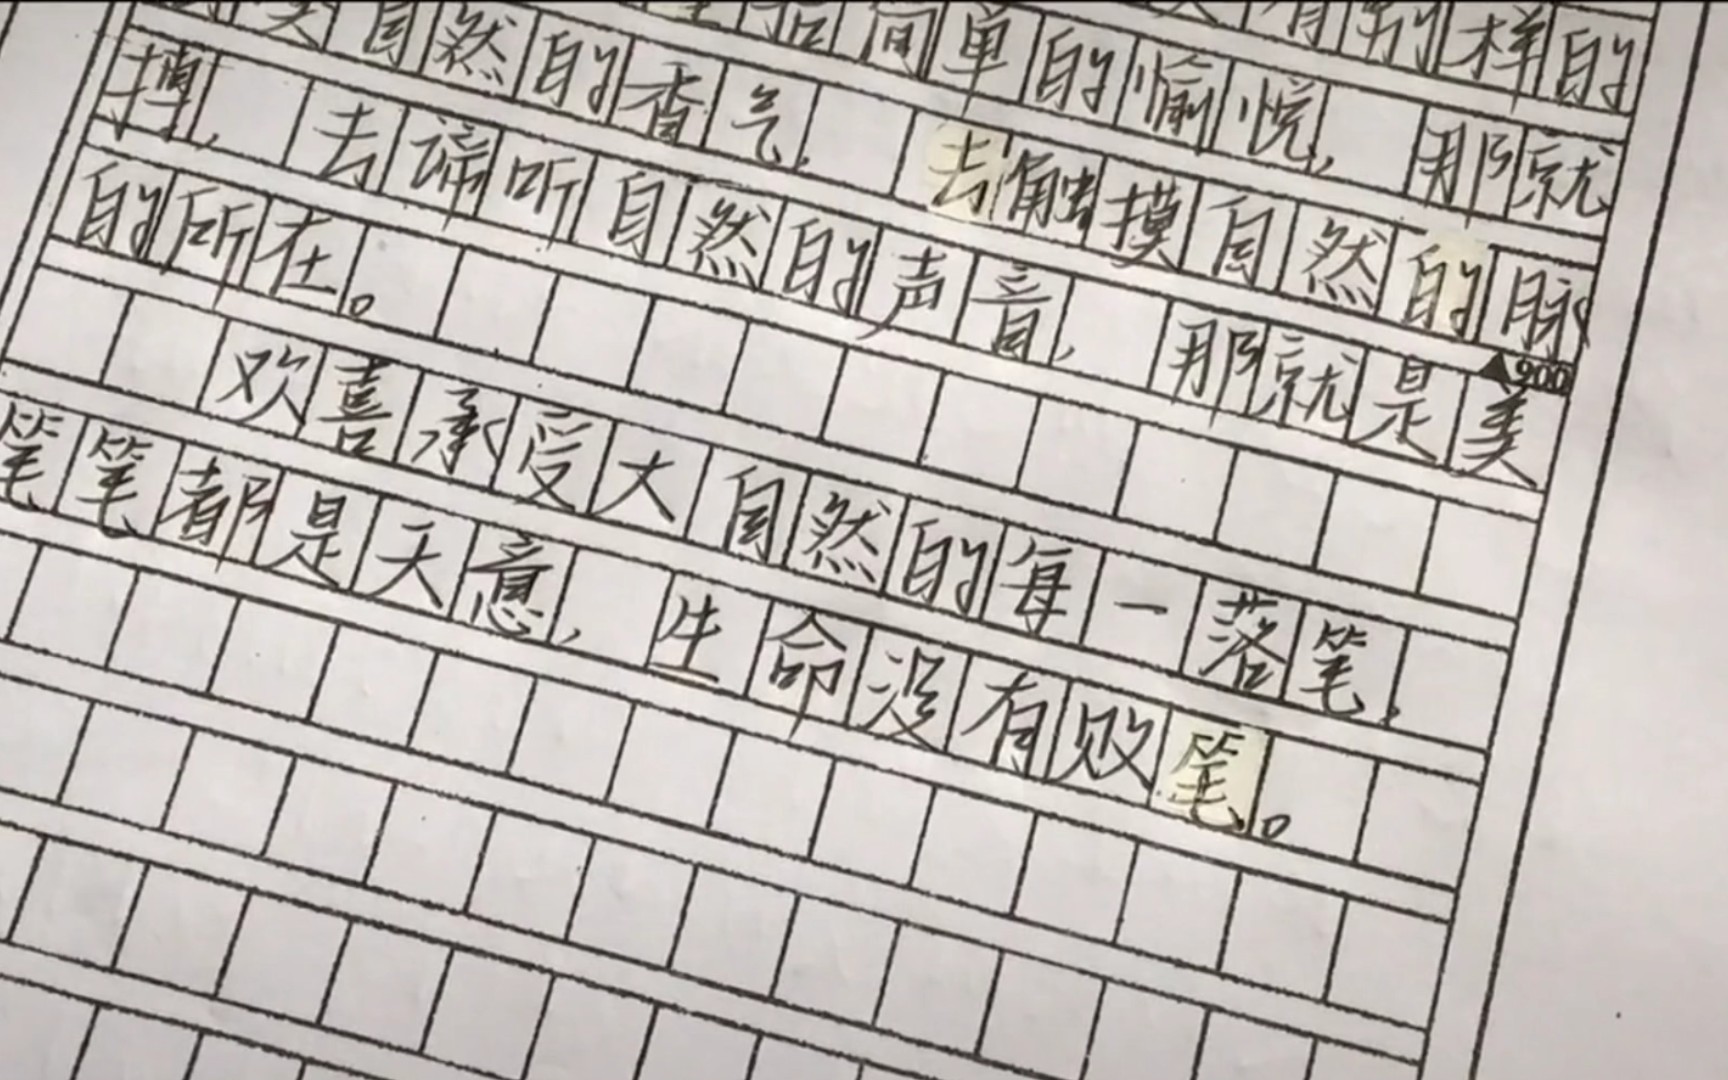 有别样的
简单的愉悦，那就
自然的香气，去触摸自然的脉
▲900
搏，去谛听自然的声音，那就是美
的所在。
欢喜承受大自然的每一落笔，
笔笔都是天意，生命没有败笔。